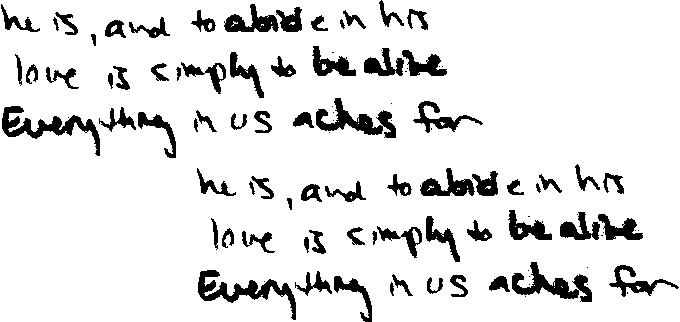 he is, and to abide in his
love is simply to be alive
Everything in us aches for
he is, and to abide in his
love is simply to be alive
Everything in us aches for